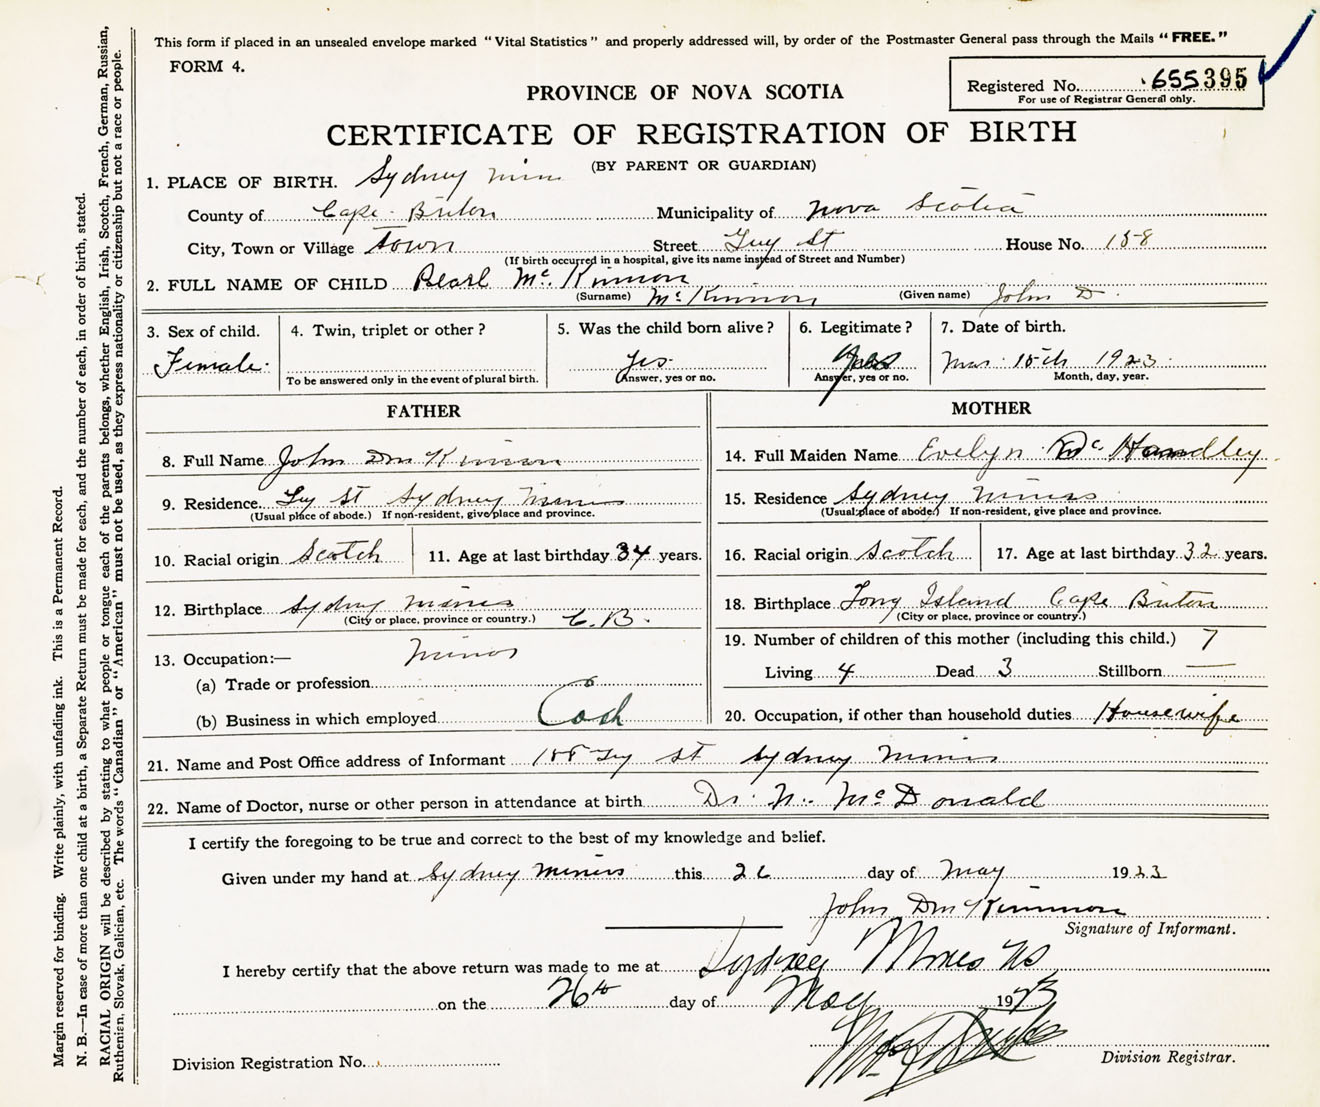 This form if placed in an unsealed envelope marked "Vital Statistics" and properly addressed will, by order of the Postmaster General pass through the Mails "FREE."
FORM 4.
Registered No. 655395
For use of Registrar General only.
PROVINCE OF NOVA SCOTIA
CERTIFICATE OF REGISTRATION OF BIRTH
(BY PARENT OR GUARDIAN)
1. PLACE OF BIRTH. Sydney
County of Cape Briton Municipality of Nova Scotia
City, Town or Village Town Street Guy St House No. 158
(If birth occurred in a hospital, give its name instead of Street and Number)
2. FULL NAME OF CHILD Pearl Mc. Kinnon
(Surname) Mc Kinnon (Given name) John D.
3. Sex of child. 4. Twin, triplet or other? 5. Was the child born alive? 6. Legitimate? 7. Date of birth.
Female. Yes. Yes Mar 15th 1923
To be answered only in the event of plural birth. Answer, yes or no. Answer, yes or no. Month, day, year.
FATHER MOTHER
8. Full Name John 14. Full Maiden Name Evelyn
9. Residence St Sydney 15. Residence Sydney
(Usual place of abode.) If non-resident, give place and province. (Usual place of abode.) If non-resident, give place and province.
10. Racial origin Scotch 11. Age at last birthday 34 years. 16. Racial origin Scotch 17. Age at last birthday 32 years.
12. Birthplace Sydney Mines 18. Birthplace Long Island Cape Briton
(City or place, province or country.) C.B. (City or place, province or country.)
13. Occupation:— 19. Number of children of this mother (including this child.) 7
(a) Trade or profession Living 4 Dead 3 Stillborn —
(b) Business in which employed 20. Occupation, if other than household duties Housewife
21. Name and Post Office address of Informant St Sydney
22. Name of Doctor, nurse or other person in attendance at birth Dr. McDonald
I certify the foregoing to be true and correct to the best of my knowledge and belief.
Given under my hand at Sydney this day of May 1923
John
Signature of Informant.
I hereby certify that the above return was made to me at Sydney Mines NS
on the 26th day of May 1923
Division Registration No. Division Registrar.
Margin reserved for binding. Write plainly, with unfading ink. This is a Permanent Record.
N. B.—In case of more than one child at a birth, a Separate Return must be made for each, and the number of each, in order of birth, stated.
RACIAL ORIGIN will be described by stating to what people or tongue each of the parents belongs, whether English, Irish, Scotch, French, German, Russian,
Ruthenian, Slovak, Galician, etc. The words "Canadian" or "American" must not be used, as they express nationality or citizenship but not a race or people.